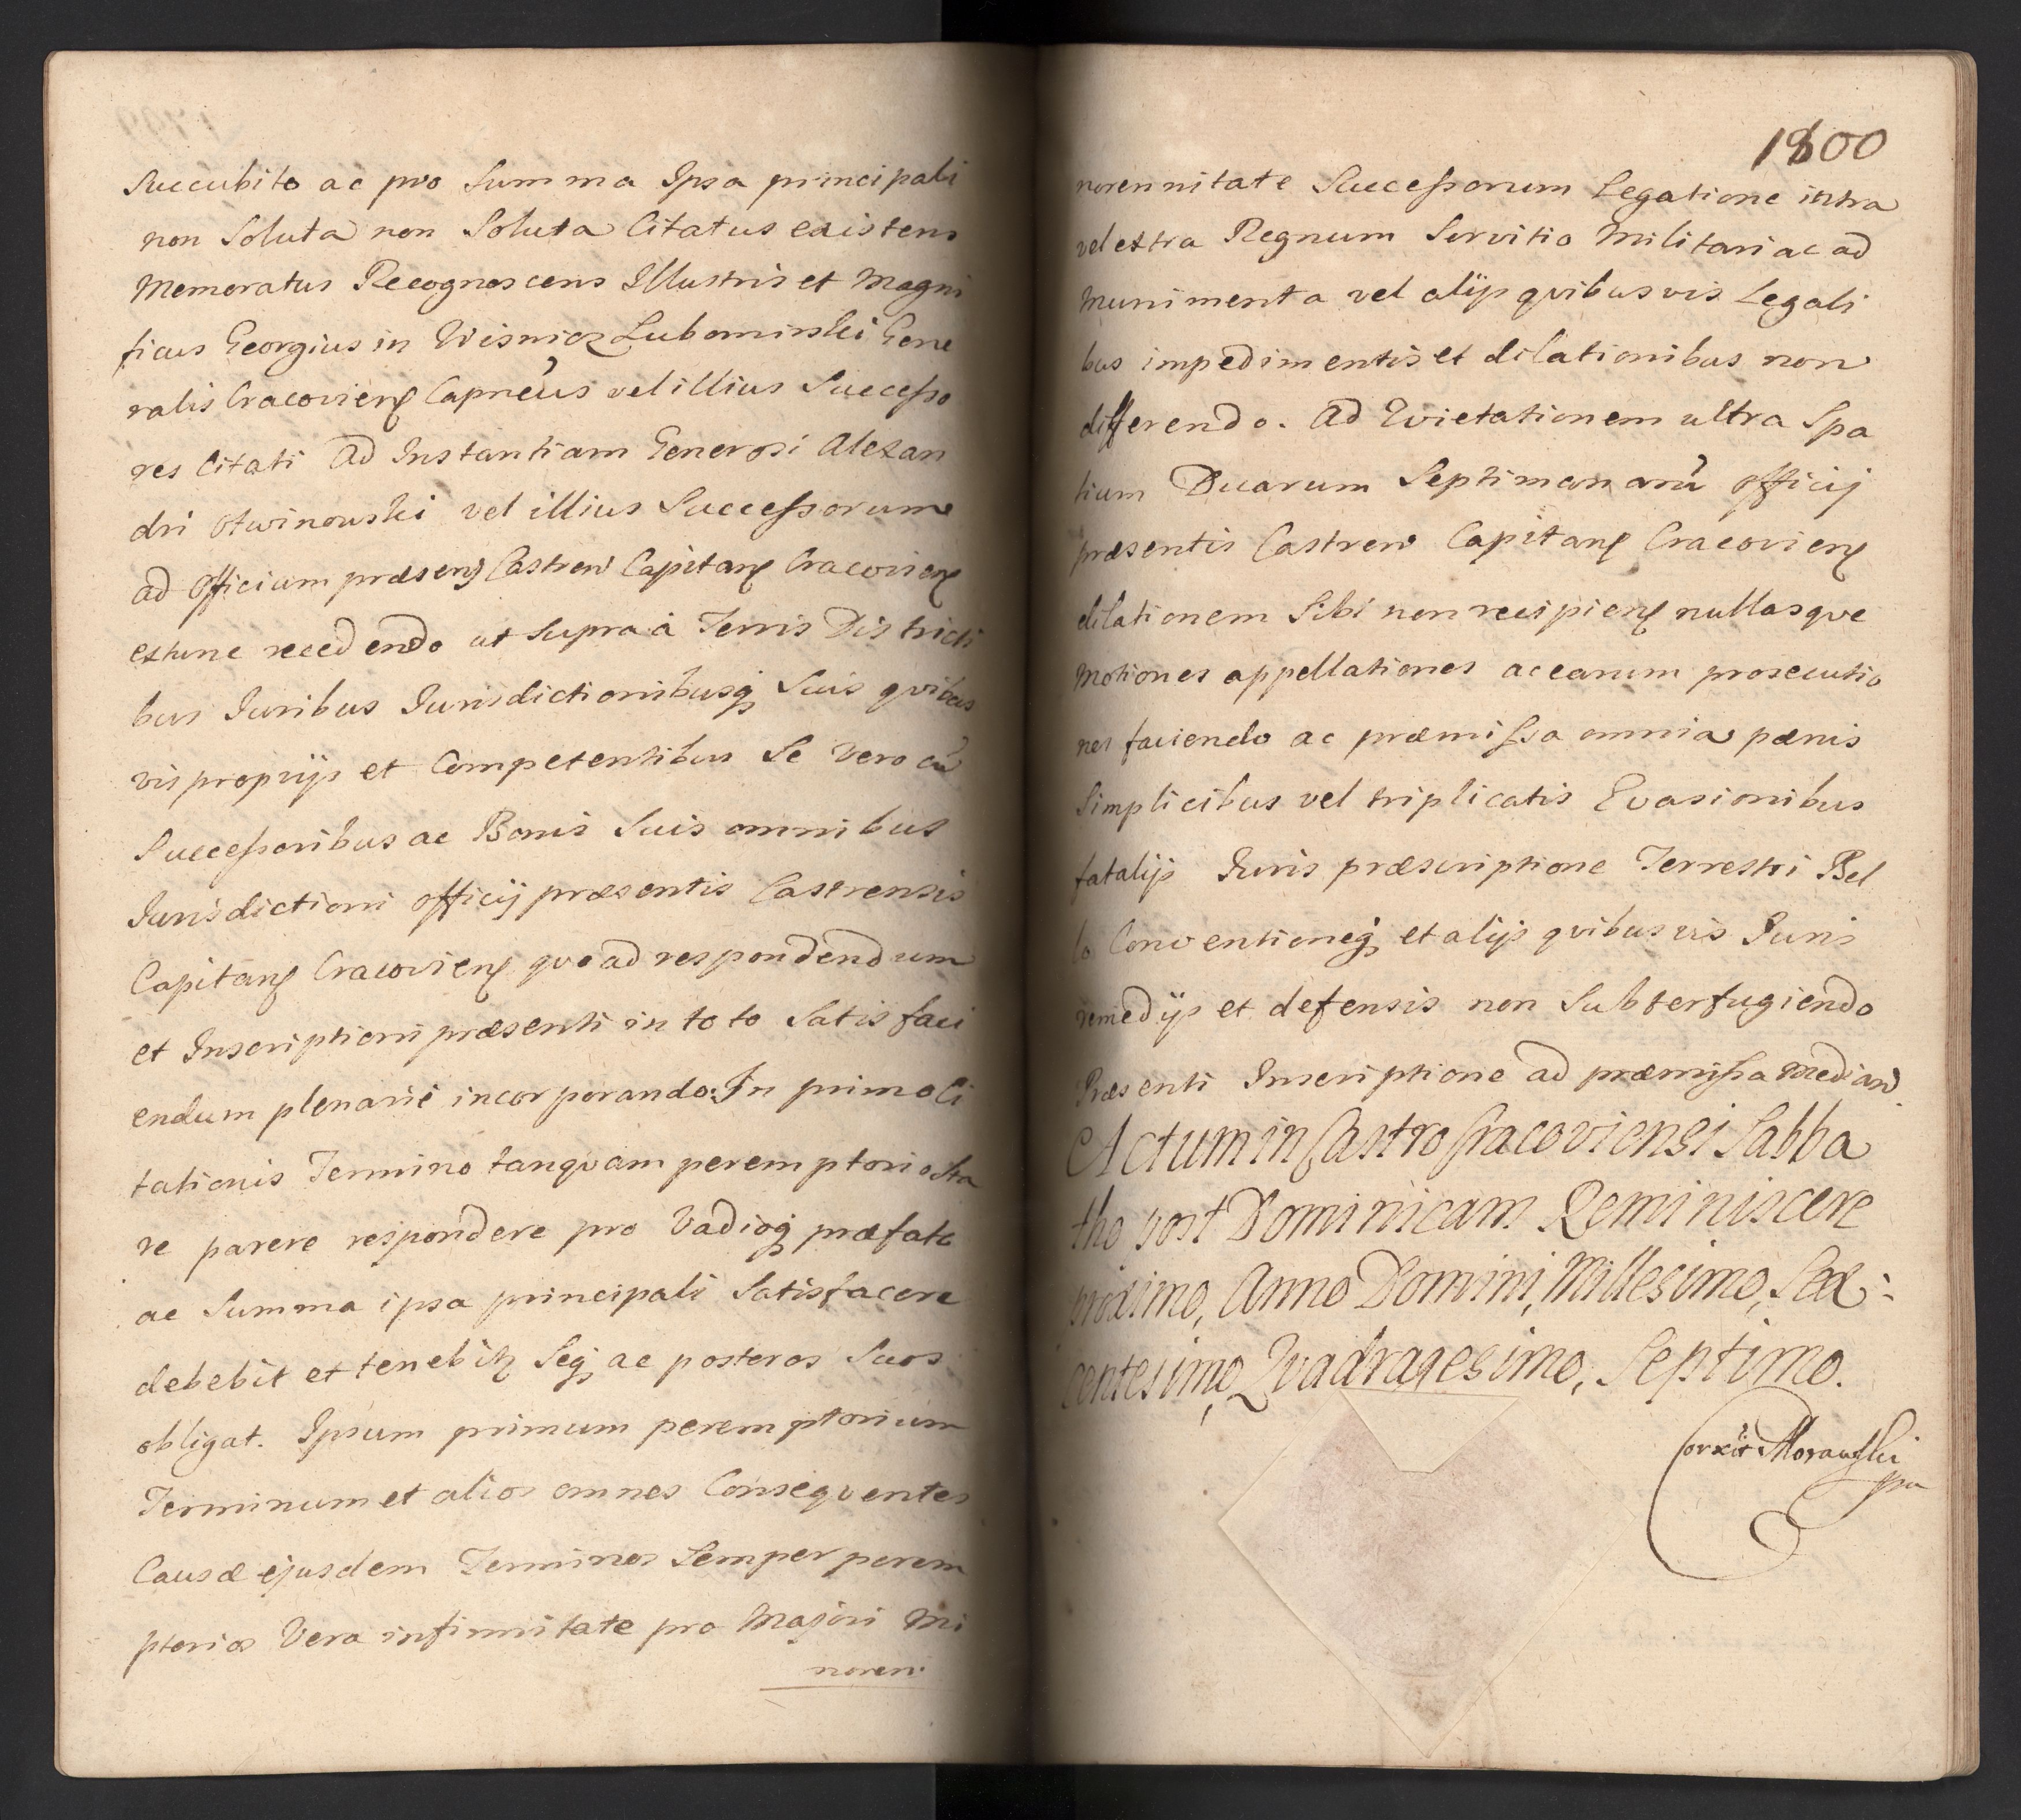 Succubito ac pro Summa Ipsa principali
non Soluta non Soluta Citatus existens
Memoratus Recognoscens Illustris et Magni
ficus Georgius in Wisnicz Lubomirski Gene
ralis Cracovień Capneus vel illius Successo
res Citati Ad Instantiam Generosi Alexan
dri Otwinowski vel illius Successorum
ad Officium præsens Castren Capitań Cracovień
extunc recedendo ut Supra à Terris Districti
bus Iuribus Iurisdictionibusq Suis qvibus
vis proprijs et Competentibus Se Vero cũ
Successoribus ac Bonis Suis omnibus
Iurisdictioni officij præsentis Castrensis
Capitań Cracovień qvo ad respondendum
et Inscriptioni præsenti in toto Satisfaci
endum plenariè incorporando. In primo Ci
tationis Termino tanqvam peremptorio Sta
re parere respondere pro Vadioq præfato
ac Summa ipsa principali Satisfacere
debebit et tenebitur Seq ac posteros Suos
obligat. Ipsum primum peremptorium
Terminum et alios omnes Conseqventes
Causæ ejusdem Terminos Semper perem
ptorios Vera infirmitate pro Majori Mi
noren
1800
norennitate Successorum Legatione intra
vel extra Regnum Servitio Militari ac ad
Munimenta vel alijs qvibusvis Legali
bus impedimentis et dilationibus non
differendo. Ad Evictationem ultra Spa
tium Duarum Septimanarũ officij
præsentis Castren Capitań Cracovień
dilationem Sibi non recipień nullasqve
Motiones appellationes ac earum prosecutio
nes faciendo ac præmissa omnia pænis
Simplicibus vel triplicatis Evasionibus
fatalijs Iuris præscriptione Terrestri Bel
lo Conventioneq et alijs qvibusvis Iuris
remedijs et defensis non Subterfugiendo
Præsenti Inscriptione ad præmissa median
Actum in Castro Cracoviensi Sabba
tho post Dominicam Reminiscere
proximo, Anno Domini, Millesimo, Sex:
centesimo, Qvadragesimo, Septimo.
Corxit Morawski